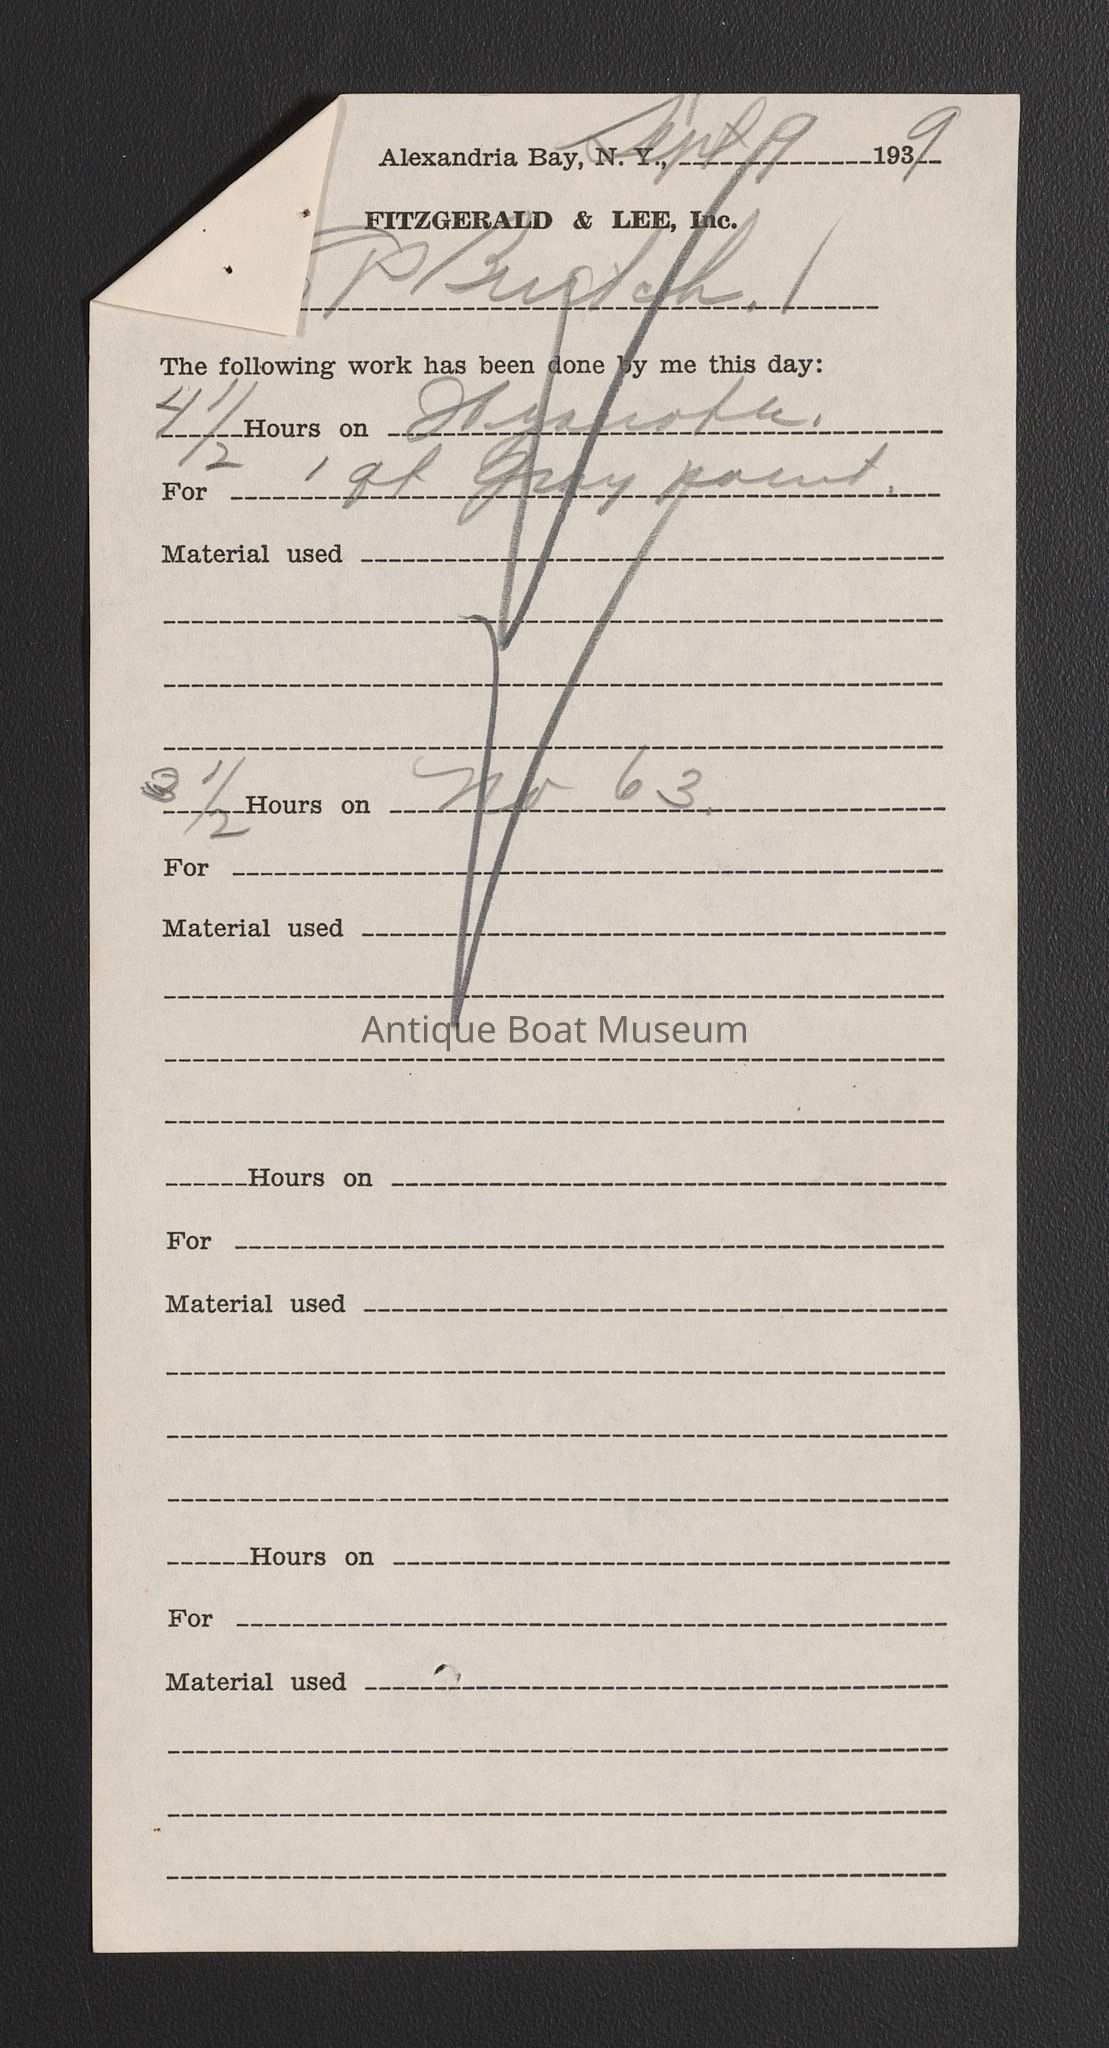 Alexandria Bay, N. Y., Sept 9 1939
FITZGERALD & LEE, Inc.
P
The following work has been done by me this day:
4 1/2 Hours on
For 1 qt Gray paint.
Material used
3 1/2 Hours on No 63.
For
Material used
Antique Boat Museum
Hours on
For
Material used
Hours on
For
Material used